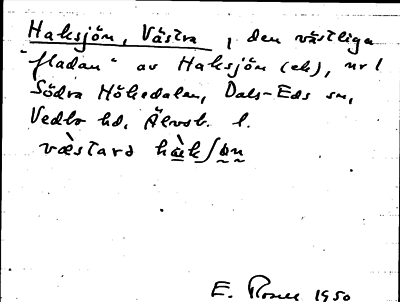 Haksjön, Västra, den västliga
"fladan" av Haksjön (ek), nr 1
Södra Hökedalen, Dals-Eds sn,
Vedbo hd, Älvsb. l.
væ̀stərə
E. 1950